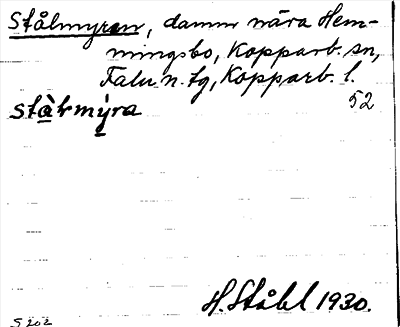 Stålmyren, damm nära Hem-
mingsbo, Kopparb. sn,
Falu n. tg, Kopparb. l.
52
stålmýra
H. Ståhl 1930.
S 202